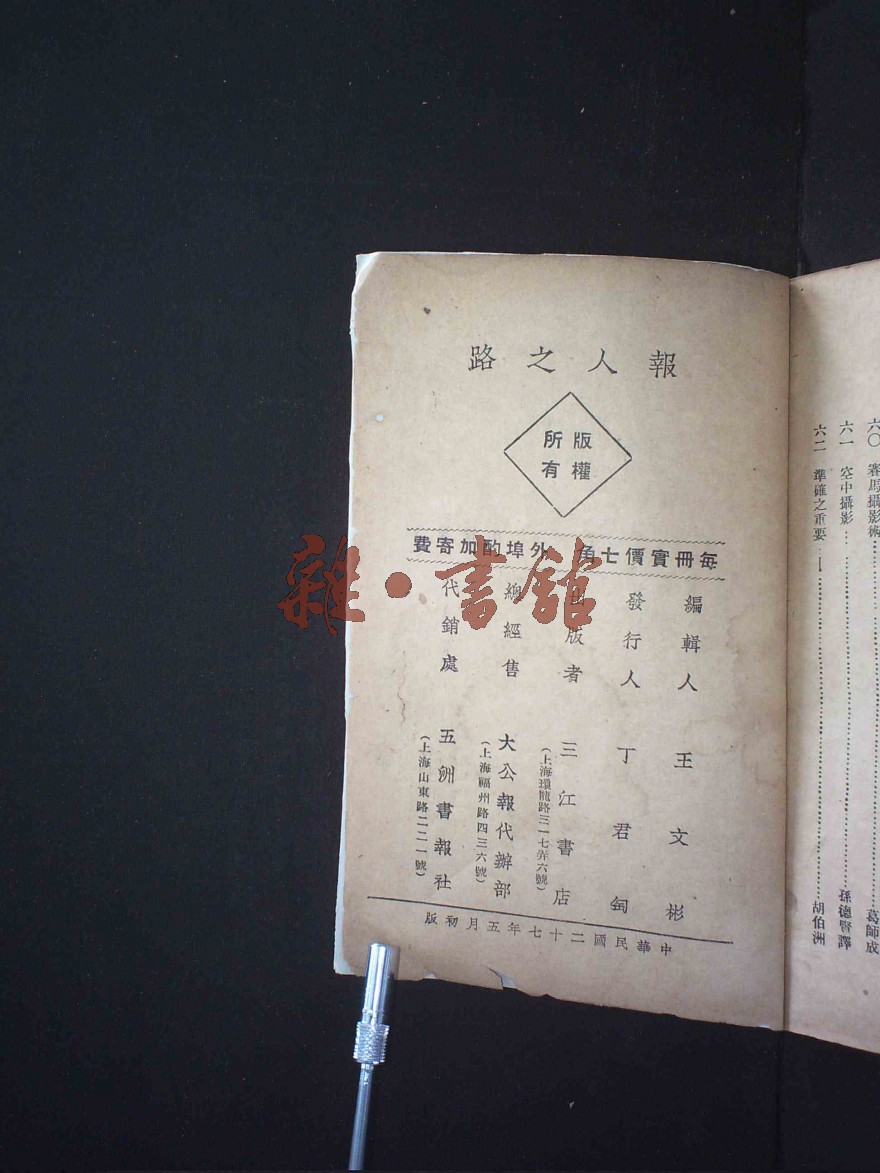 報人之路
版權
所有
每冊實價七角 外埠酌加寄費
編輯人 王文彬
發行人 丁君匋
出版者 三江書店
(上海環龍路三一七弄六號)
總經售 大公報代辦部
(上海福州路四三六號)
代銷處 五洲書報社
(上海山東路二二一號)
中華民國二十七年五月初版
六〇 賽馬攝影術 葛師成
六一 空中攝影 孫德賢譯
六二 準確之重要 胡伯洲
雜·書館